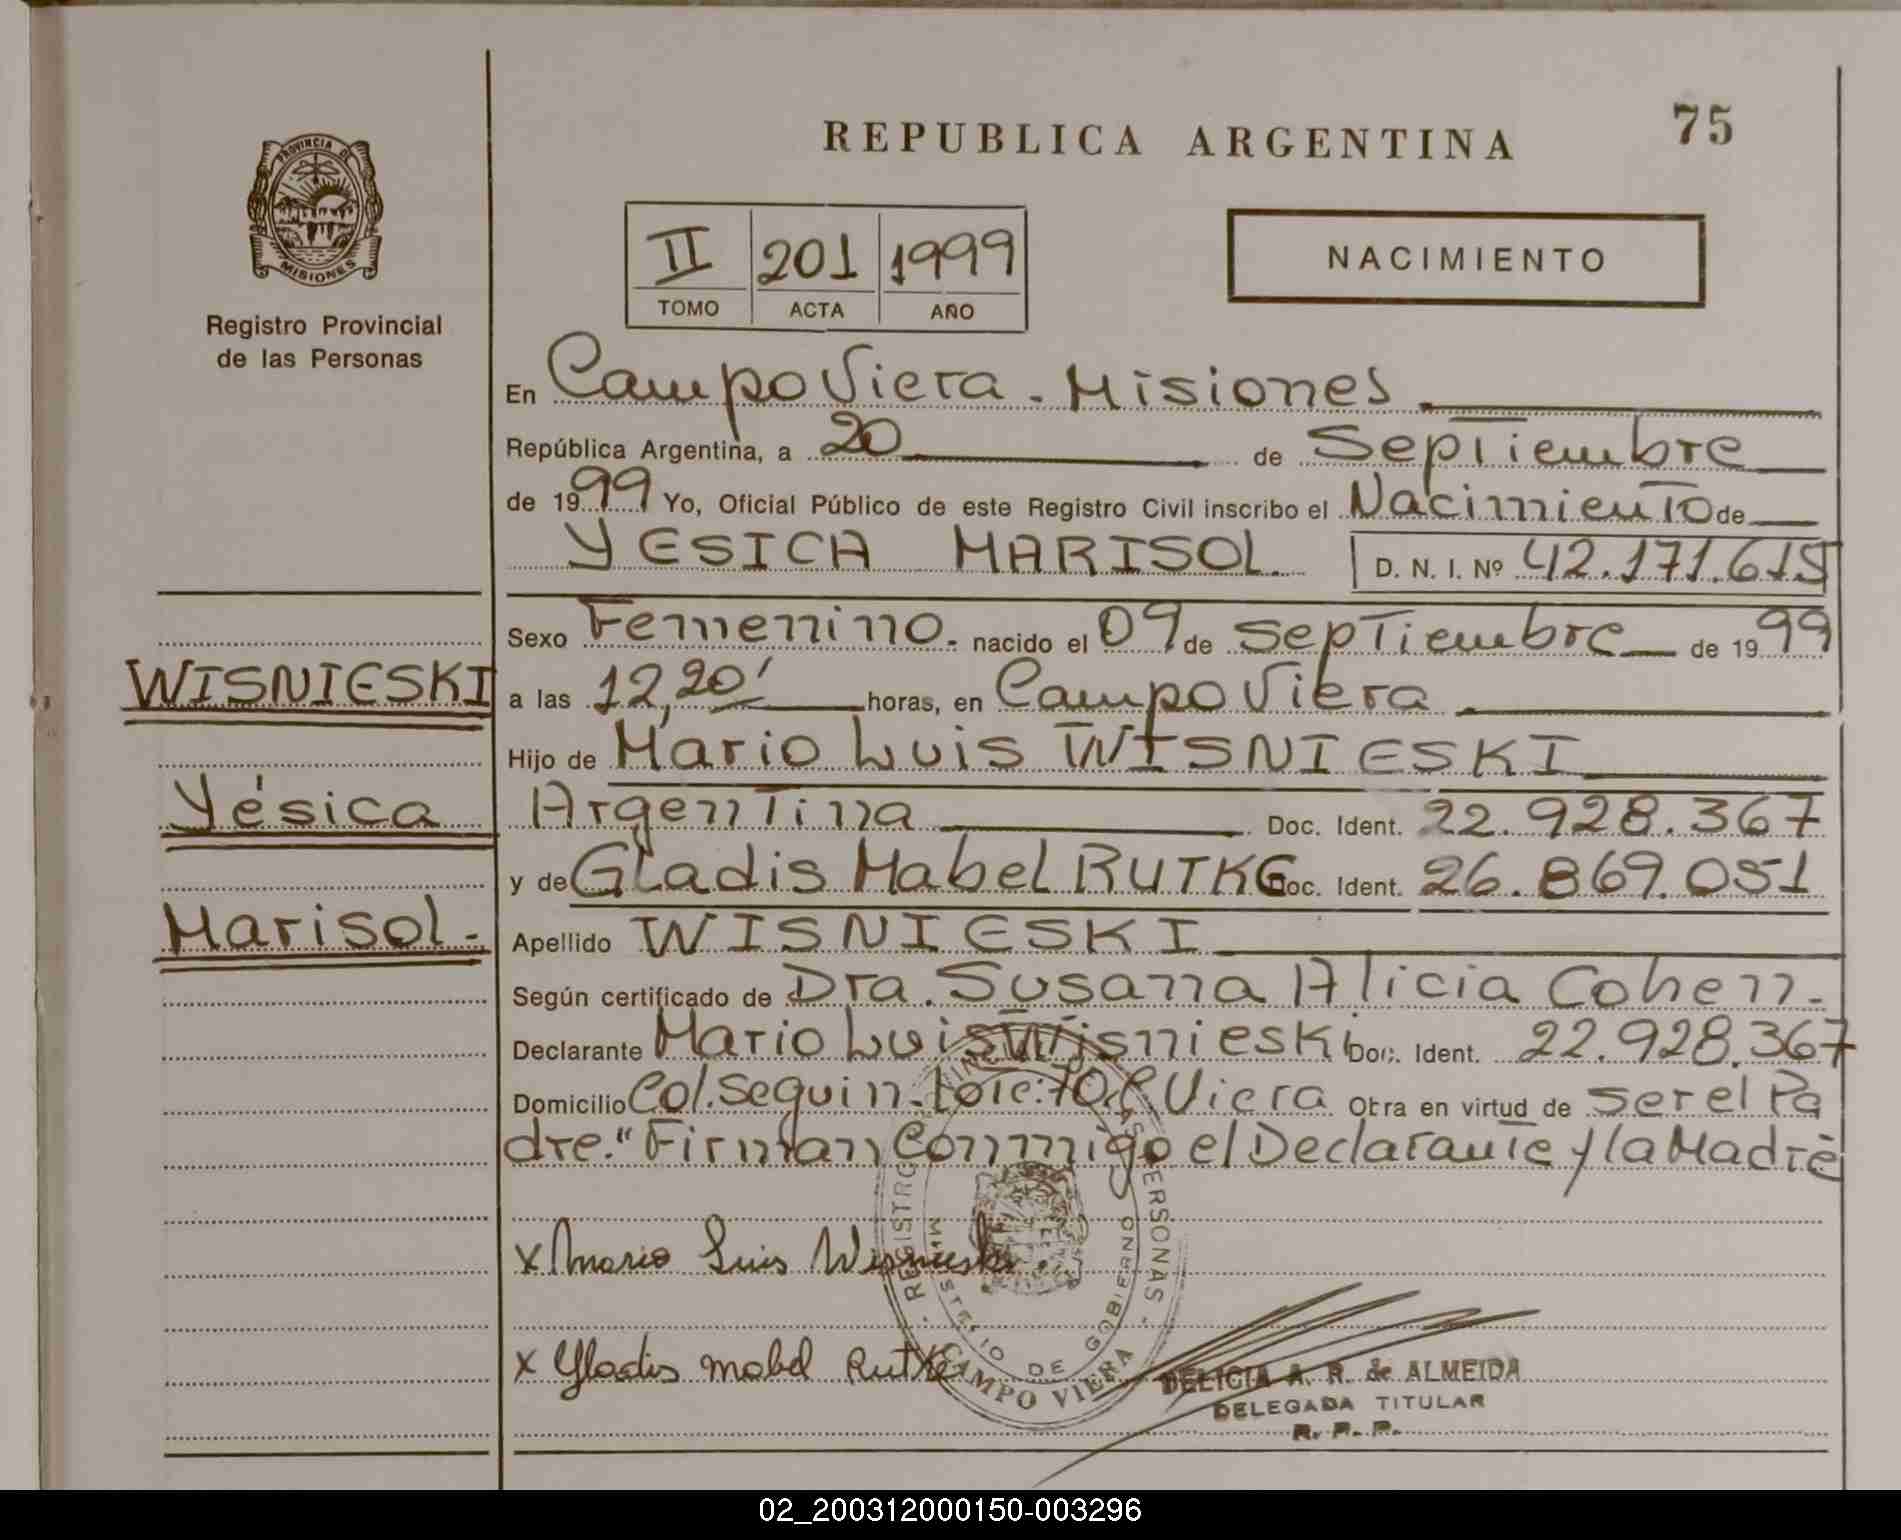 REPUBLICA ARGENTINA
75
PROVINCIA DE
MISIONES
Registro Provincial
de las Personas
II 201 1999
TOMO ACTA AÑO
NACIMIENTO
En Campo Viera - Misiones
República Argentina, a 20 de Septiembre
de 1999 Yo, Oficial Público de este Registro Civil inscribo el Nacimiento de
YESICA MARISOL. D. N. I. Nº 42.171.615
Sexo Femenino.- nacido el 09 de Septiembre de 1999
a las 12,20' horas, en Campo Viera
Hijo de Mario Luis WISNIESKI
Argentina Doc. Ident. 22.928.367
y de Gladis Mabel RUTKE Doc. Ident. 26.869.051
Apellido WISNIESKI
Según certificado de Dra. Susana Alicia Cohen.-
Declarante Mario Luis Wisnieski Doc. Ident. 22.928.367
Domicilio Col. Seguin - Lote: 70. C. Viera Obra en virtud de ser el Pa
dre." Firman Conmigo el Declarante y la Madre
WISNIESKI
Yésica
Marisol.-
x Mario Luis Wisnieski
x Gladis Mabel Rutke
REGISTRO PROVINCIAL DE LAS PERSONAS
MINISTERIO DE GOBIERNO
CAMPO VIERA
DELICIA A. R. de ALMEIDA
DELEGADA TITULAR
R. P. P.
02_200312000150-003296